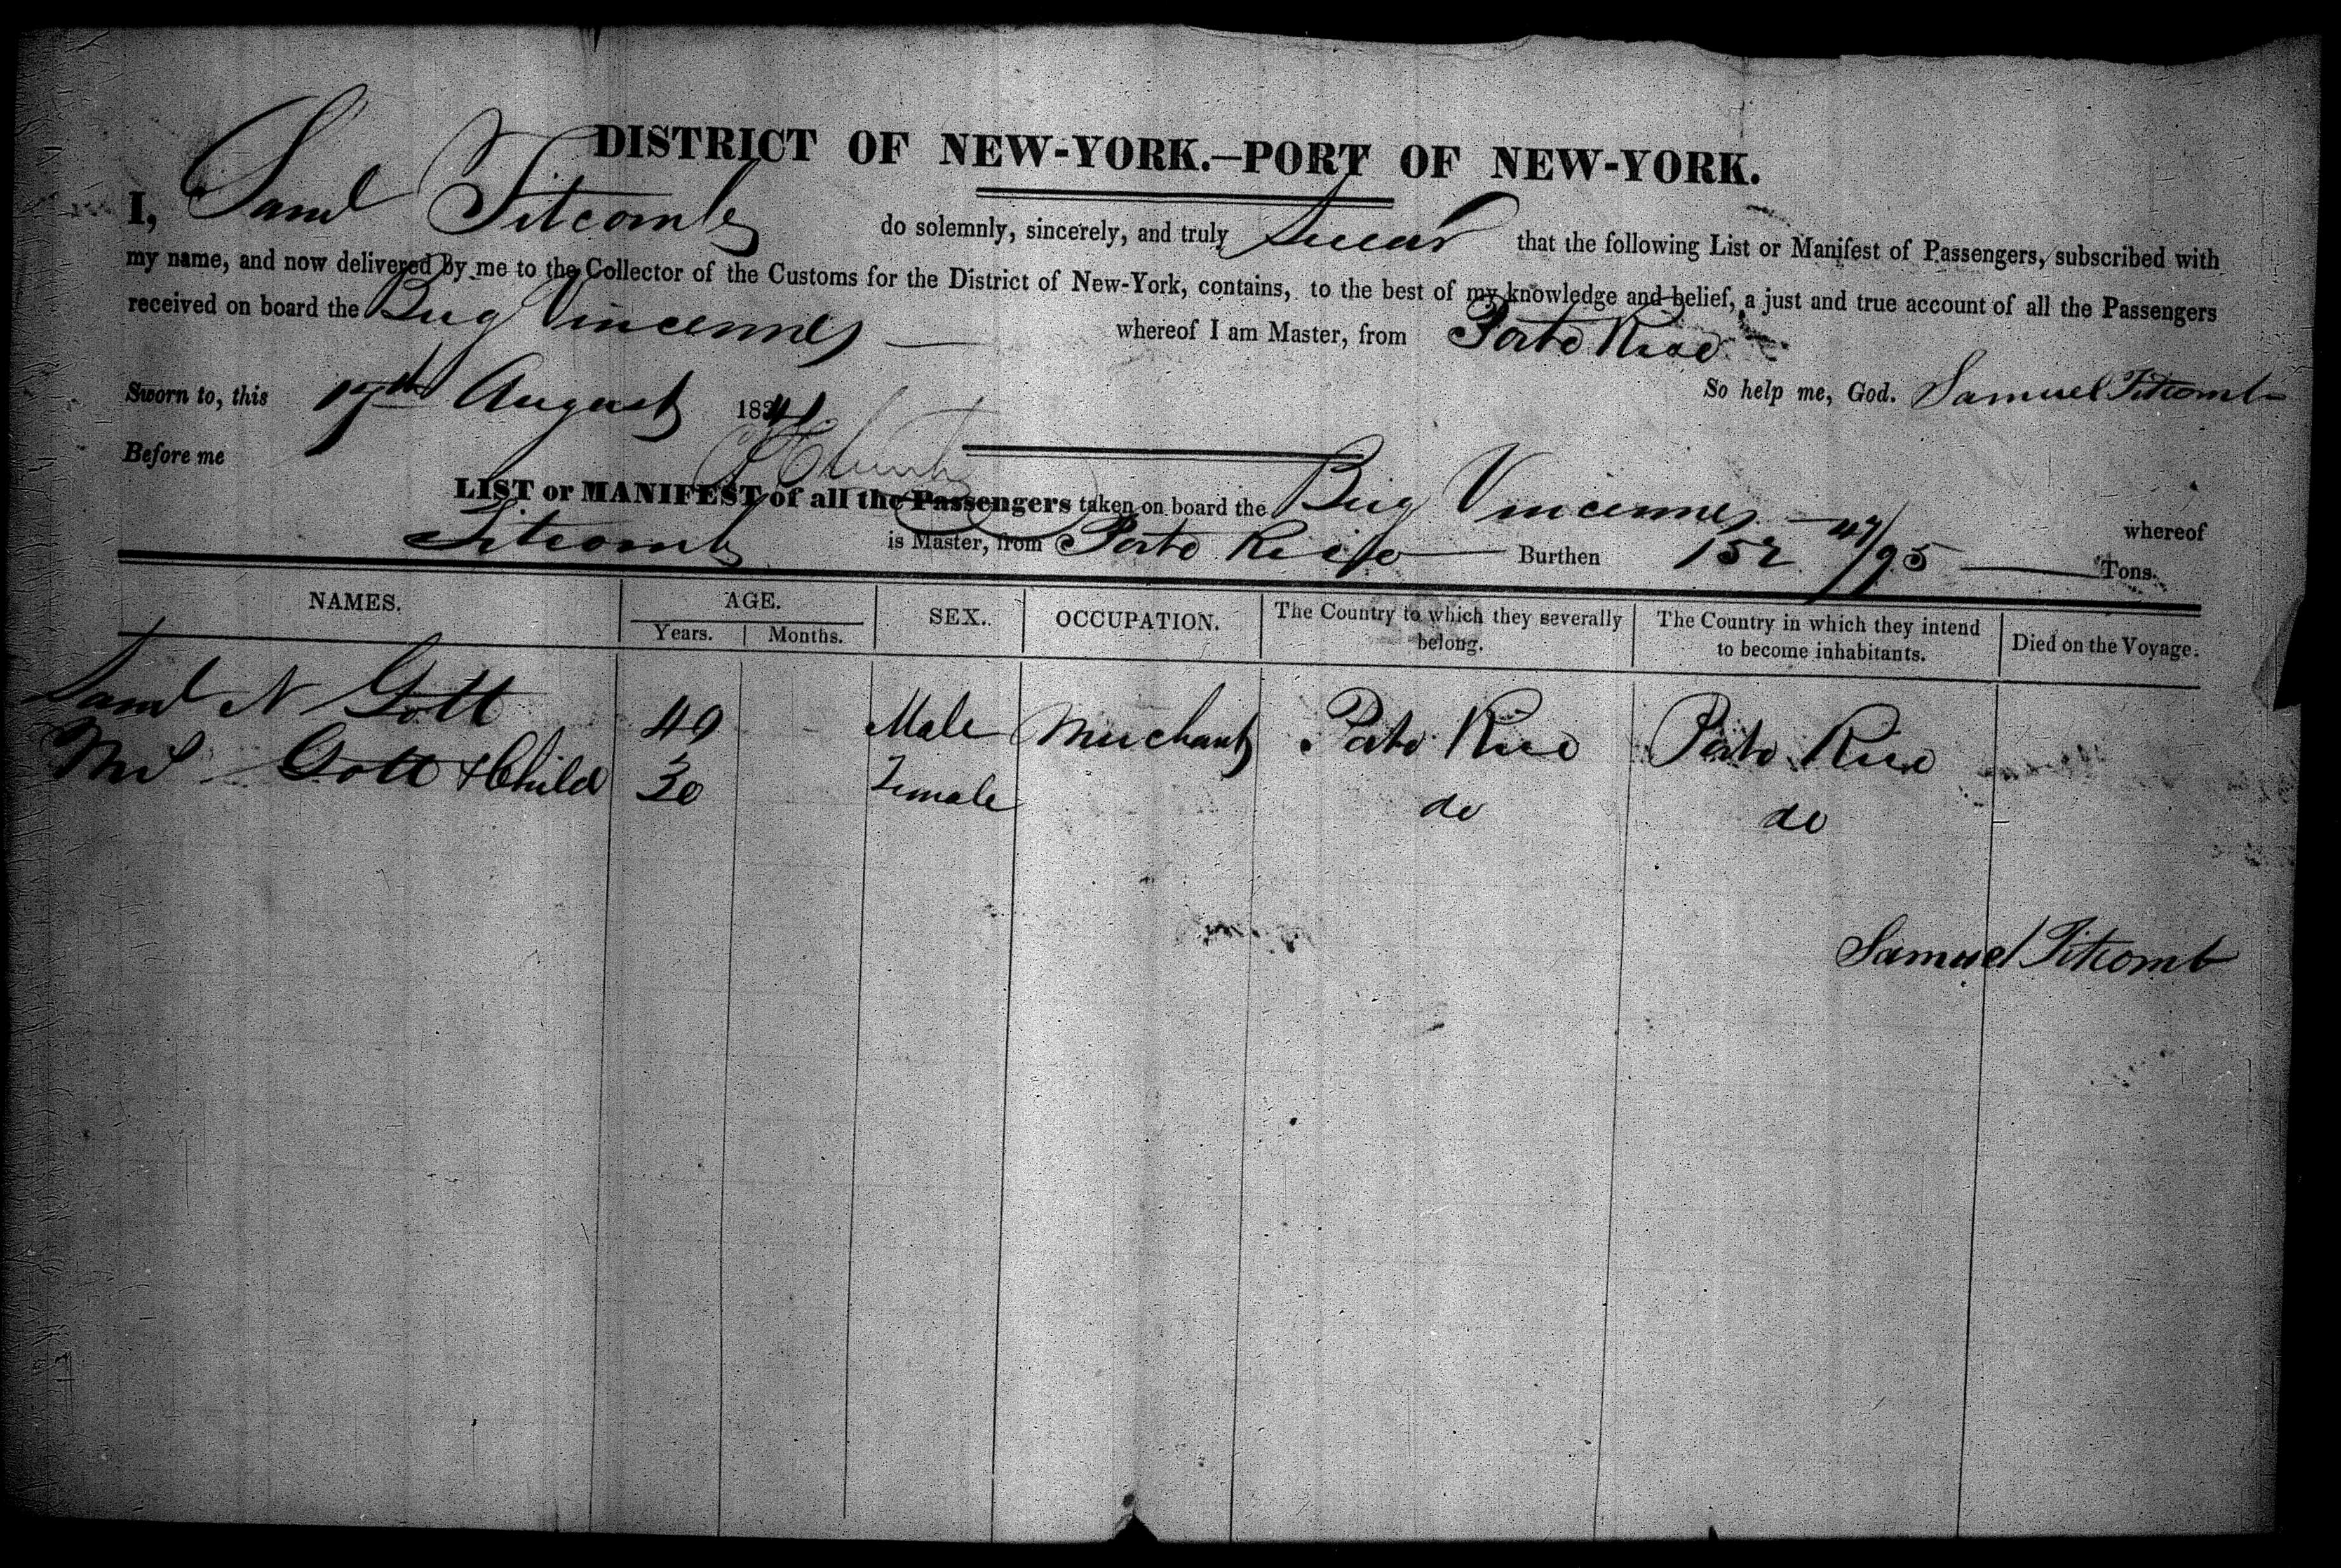 DISTRICT OF NEW-YORK.—PORT OF NEW-YORK.
I, Saml Titcomb do solemnly, sincerely, and truly Swear that the following List or Manifest of Passengers, subscribed with
my name, and now delivered by me to the Collector of the Customs for the District of New-York, contains, to the best of my knowledge and belief, a just and true account of all the Passengers
received on board the Brig Vincennes whereof I am Master, from Porto Rico
So help me, God. Samuel Titcomb
Sworn to, this 17th August 1841
Before me
LIST or MANIFEST of all the Passengers taken on board the Brig Vincennes whereof
Titcomb is Master, from Porto Rico Burthen 152 47/95 Tons.
NAMES. AGE. SEX. OCCUPATION. The Country to which they severally belong. The Country in which they intend to become inhabitants. Died on the Voyage.
Years. Months.
Saml N Gott 40 Male Merchant Porto Rico Porto Rico
Mrs Gott & Child 30 Female do do
Samuel Titcomb